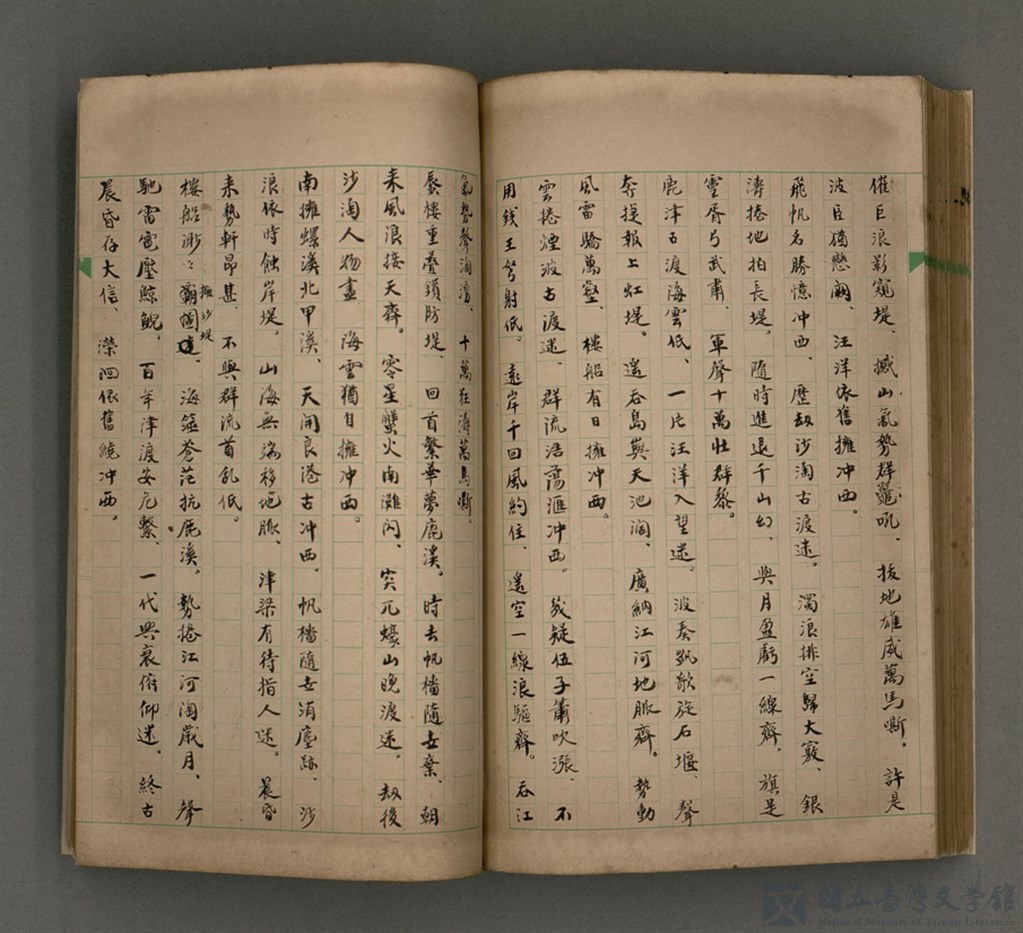 催巨浪影窺堤、撼山氣勢群鼉吼、拔地雄威萬馬嘶。許是
波臣猶戀闕、汪洋依舊擁冲西。
飛帆名勝憶冲西、歷劫沙淘古渡迷。濁浪排空歸大窽、銀
濤捲地拍長堤。隨時進退千山幻、與月盈虧一線齊。旗是
靈胥弓武肅、軍聲十萬壯群黎。
鹿津古渡海雲低、一片汪洋入望迷。波奏凱歌旋石堰、聲
奔捷報上虹堤。遥吞島與天池濶、廣納江河地脈齊。勢動
風雷驕萬壑、樓船有日擁冲西。
雲捲煙波古渡迷、群流浩蕩滙冲西。幾疑伍子簫吹漲、不
用錢王弩射低。遠岸千回風約住、遥空一線浪驅齊。吞江
氣勢聲洶湧、十萬狂濤萬馬嘶。
蜃樓重疊鎖防堤、回首繁華夢鹿溪。時去帆檣隨去棄、朝
来風浪接天齊。零星蟹火南灘閃、突兀蠔山晚渡迷。劫後
沙淘人物盡 海雲猶自擁冲西。
南擁螺溪北甲溪、天開良港古冲西。帆檣隨去消塵跡、沙
浪依時蝕岸堤。山海無端移地脈、津梁有待指人迷。晨昏
来勢軒昂甚、不與群流首乱低。
樓船渺々擁沙堤、海筮蒼茫抗鹿溪。勢捲江河淘歲月、聲
馳雷電壓鯨鯢、百年津渡安危繫、一代興衰俯仰迷、終古
晨昏存大信、濚洄依舊繞冲西。
國立臺灣文學館
National Museum of Taiwan Literature